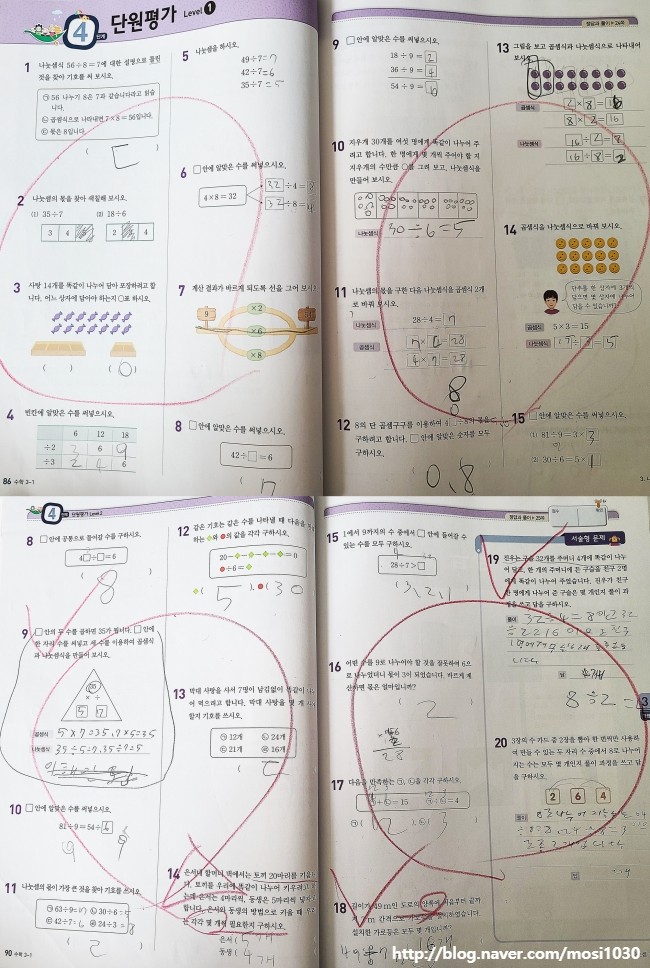 4 단계
단원평가 Level 1
1 나눗셈식 56÷8=7에 대한 설명으로 틀린
것을 찾아 기호를 써 보시오.
㉠ 56 나누기 8은 7과 같습니다라고 읽습
니다.
㉡ 곱셈식으로 나타내면 7×8=56입니다.
㉢ 몫은 8입니다.
( ㄷ )
2 나눗셈의 몫을 찾아 색칠해 보시오.
(1) 35÷7 (2) 18÷6
3 4 2 4
3 사탕 14개를 똑같이 나누어 담아 포장하려고 합
니다. 어느 상자에 담아야 하는지 ○표 하시오.
( ) ( ○ )
4 빈칸에 알맞은 수를 써넣으시오.
6 12 18
÷2 3 6 9
÷3 2 4 6
86 수학 3-1
5 나눗셈을 하시오.
49÷7=7
42÷7=6
35÷7=5
6 □ 안에 알맞은 수를 써넣으시오.
4×8=32
32÷4=8
32÷8=4
7 계산 결과가 바르게 되도록 선을 그어 보시오.
×2
×6
×8
8 □ 안에 알맞은 수를 써넣으시오.
42÷□=6
7
정답과 풀이
9 □ 안에 알맞은 수를 써넣으시오.
18÷9=2
36÷9=4
54÷9=6
10 지우개 30개를 여섯 명에게 똑같이 나누어 주
려고 합니다. 한 명에게 몇 개씩 주어야 할 지
지우개의 수만큼 ○를 그려 보고, 나눗셈식을
만들어 보시오.
나눗셈식 30÷6=5
11 나눗셈의 몫을 구한 다음 나눗셈식을 곱셈식 2개
로 바꿔 보시오.
나눗셈식 28÷4=7
곱셈식 7×4=28
4×7=28
8
0
12 8의 단 곱셈구구를 이용하여 4□÷8의 몫을
구하려고 합니다. □ 안에 알맞은 숫자를 모두
구하시오.
0,8
13 그림을 보고 곱셈식과 나눗셈식으로 나타내어
보시오.
곱셈식 2×8=16
8×2=16
나눗셈식 16÷2=8
16÷8=2
14 곱셈식을 나눗셈식으로 바꿔 보시오.
단추를 한 상자에 3개씩
담으면 몇 상자에 나누어
담을 수 있습니까?
곱셈식 5×3=15
나눗셈식 15÷3=5
15 □ 안에 알맞은 수를 써넣으시오.
(1) 81÷9=3×3
9
(2) 30÷6=5×1
4 단원평가 Level 2
8 □ 안에 공통으로 들어갈 수를 구하시오.
4□÷□=6
8
9 □ 안의 두 수를 곱하면 35가 됩니다. □ 안에
한 자리 수를 써넣고 세 수를 이용하여 곱셈식
과 나눗셈식을 만들어 보시오.
35
× ÷
5 7
곱셈식 5×7=35, 7×5=35
나눗셈식 35÷5=7, 35÷7=5
10 □ 안에 알맞은 수를 써넣으시오.
81÷9=54÷6
9 9
11 나눗셈의 몫이 가장 큰 것을 찾아 기호를 쓰시오.
㉠ 63÷9=7 ㉡ 30÷6=5
㉢ 42÷7=6 ㉣ 24÷3=8
90 수학 3-1
12 같은 기호는 같은 수를 나타낼 때 다음을
하는 와 의 값을 각각 구하시오.
÷6=
( 5 ), ( 30 )
13 막대 사탕을 사서 7명이 남김없이 똑같이 나누
어 먹으려고 합니다. 막대 사탕을 몇 개 사야
할지 기호를 쓰시오.
㉠ 12개 ㉡ 24개
㉢ 21개 ㉣ 16개
( ㄷ )
14 은서네 할머니 댁에서는 토끼 20마리를 기릅니
다. 토끼를 우리에 똑같이 나누어 키우려고 하
는데 은서는 4마리씩, 동생은 5마리씩 넣자고
합니다. 은서와 동생의 방법으로 키울 때 우리
는 각각 몇 개씩 필요한지 구하시오.
은서 ( 5개
동생 ( 4개
정답과 풀이
15 1에서 9까지의 수 중에서 □ 안에 들어갈 수
있는 수를 모두 구하시오.
28÷7>□
( 3, 2, 1 )
16 어떤 수를 9로 나누어야 할 것을 잘못하여 6으
로 나누었더니 몫이 3이 되었습니다. 바르게 계
산하면 몫은 얼마입니까?
( 2 )
17 다음을 만족하는 ㉠, ㉡을 각각 구하시오.
㉠+㉡=15 ㉠÷㉡=4
㉠ ( 12 ), ㉡ ( 3 )
18 길이가 49 m인 도로의 한쪽에 처음부터 끝까
지 m 간격으로 가로등을 설치하였습니다.
설치한 가로등은 모두 몇 개입니까?
서술형 문제
19 진우는 구슬 32개를 주머니 4개에 똑같이 나누
어 담고, 한 개의 주머니에 든 구슬을 친구 2명
에게 똑같이 나누어 주었습니다. 진우가 친구
한 명에게 나누어 준 구슬은 몇 개인지 풀이 과
정을 쓰고 답을 구하시오.
풀이 32÷4=8이고
답
8÷2=
20 3장의 수 카드 중 2장을 뽑아 한 번씩만 사용하
여 만들 수 있는 두 자리 수 중에서 8로 나누어
지는 수는 모두 몇 개인지 풀이 과정을 쓰고 답
을 구하시오.
2 6 4
풀이
답
http://blog.naver.com/mosi1030